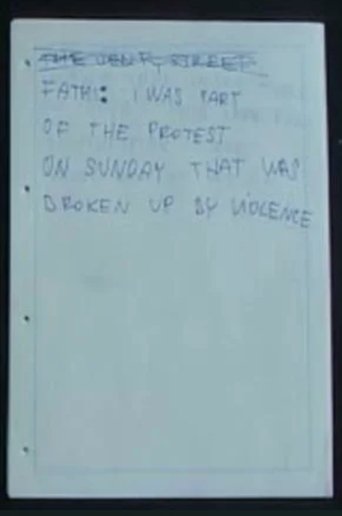 THE STREET
FATHI: I WAS PART
OF THE PROTEST
ON SUNDAY THAT WAS
BROKEN UP BY VIOLENCE